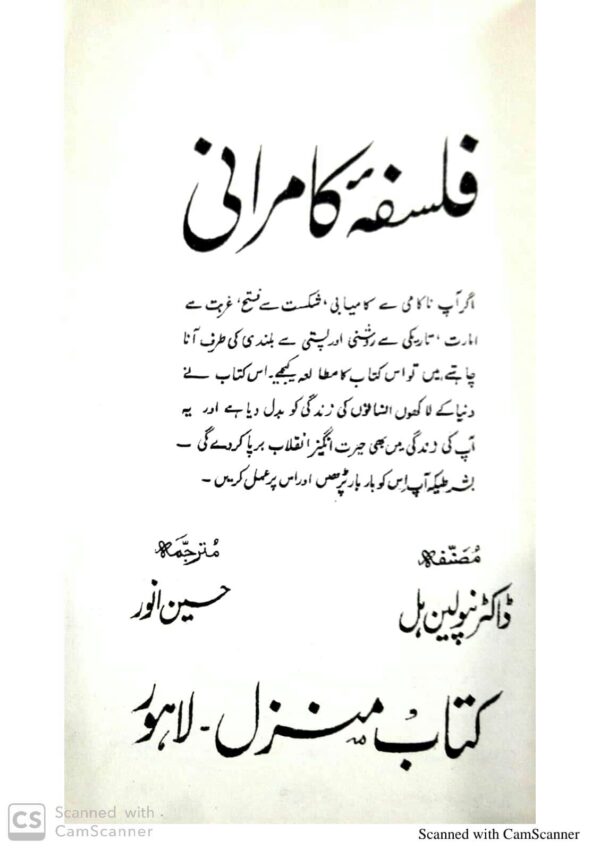 فلسفۂ کامرانی
اگر آپ ناکامی سے کامیابی، شکست سے فتح، غربت سے
امارت، تاریکی سے روشنی اور پستی سے بلندی کی طرف آنا
چاہتے ہیں تو اس کتاب کا مطالعہ کیجیے۔ اس کتاب نے
دنیا کے لاکھوں انسانوں کی زندگی کو بدل دیا ہے اور یہ
آپ کی زندگی میں بھی حیرت انگیز انقلاب برپا کر دے گی ۔
بشرطیکہ آپ اِس کو بار بار پڑھیں اور اس پر عمل کریں ۔
مُصنّفہ
مُترجّمہ
ڈاکٹر نپولین ہل
حسین انور
کتاب منزل - لاہور
CS Scanned with CamScanner
Scanned with CamScanner